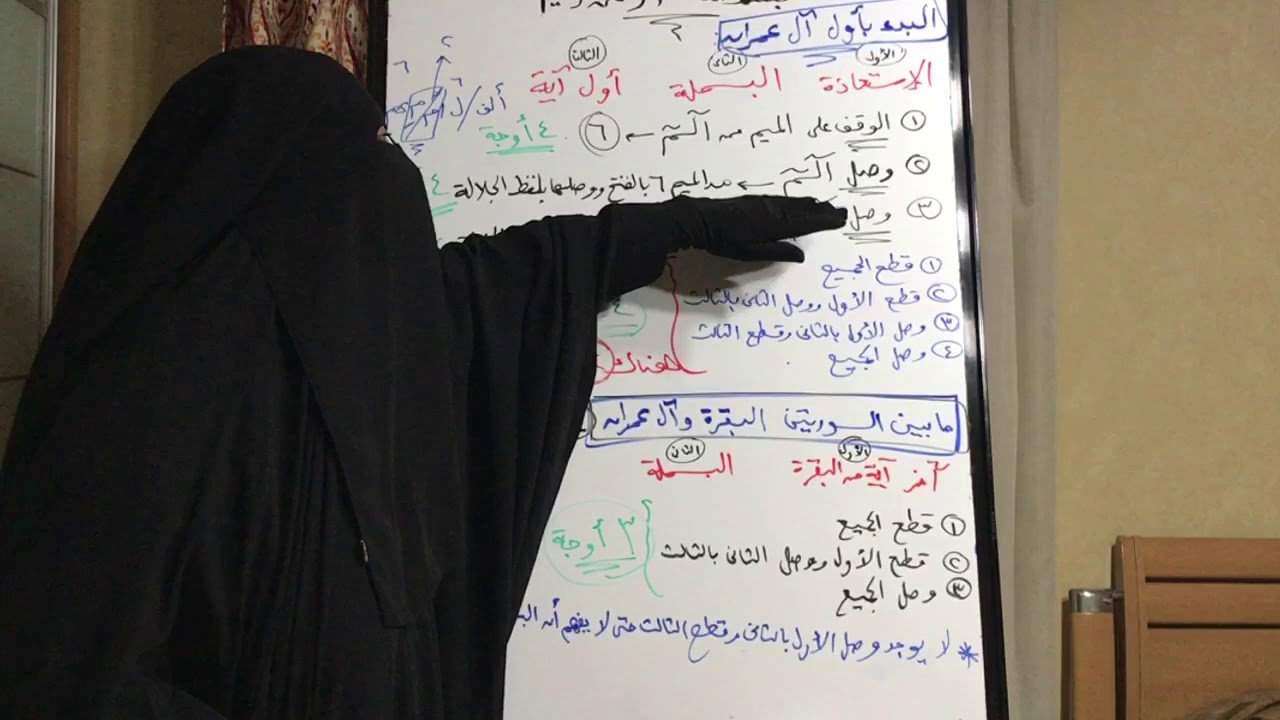 البدء بأول آل عمران
الأول الثاني الثالث
الاستعاذة البسملة أول آية
① الوقف على الميم من الٓمٓ ← ٦ ٤ أوجة
② وصل الٓمٓ ← مد الميم ٦ بالفتح ووصلها بلفظ الجلالة ٤
③ وصل
① قطع الجميع
② قطع الأول ووصل الثانى بالثالث
③ وصل الأول بالثانى وقطع الثالث
④ وصل الجميع
ما بين السورتين البقرة وآل عمران
الأول الثانى
آخر آية من البقرة البسملة
① قطع الجميع
② قطع الأول ووصل الثانى بالثالث
③ وصل الجميع
٣ أوجة
* لا يوجد وصل الأول بالثانى وقطع الثالث حتى لا يفهم أن